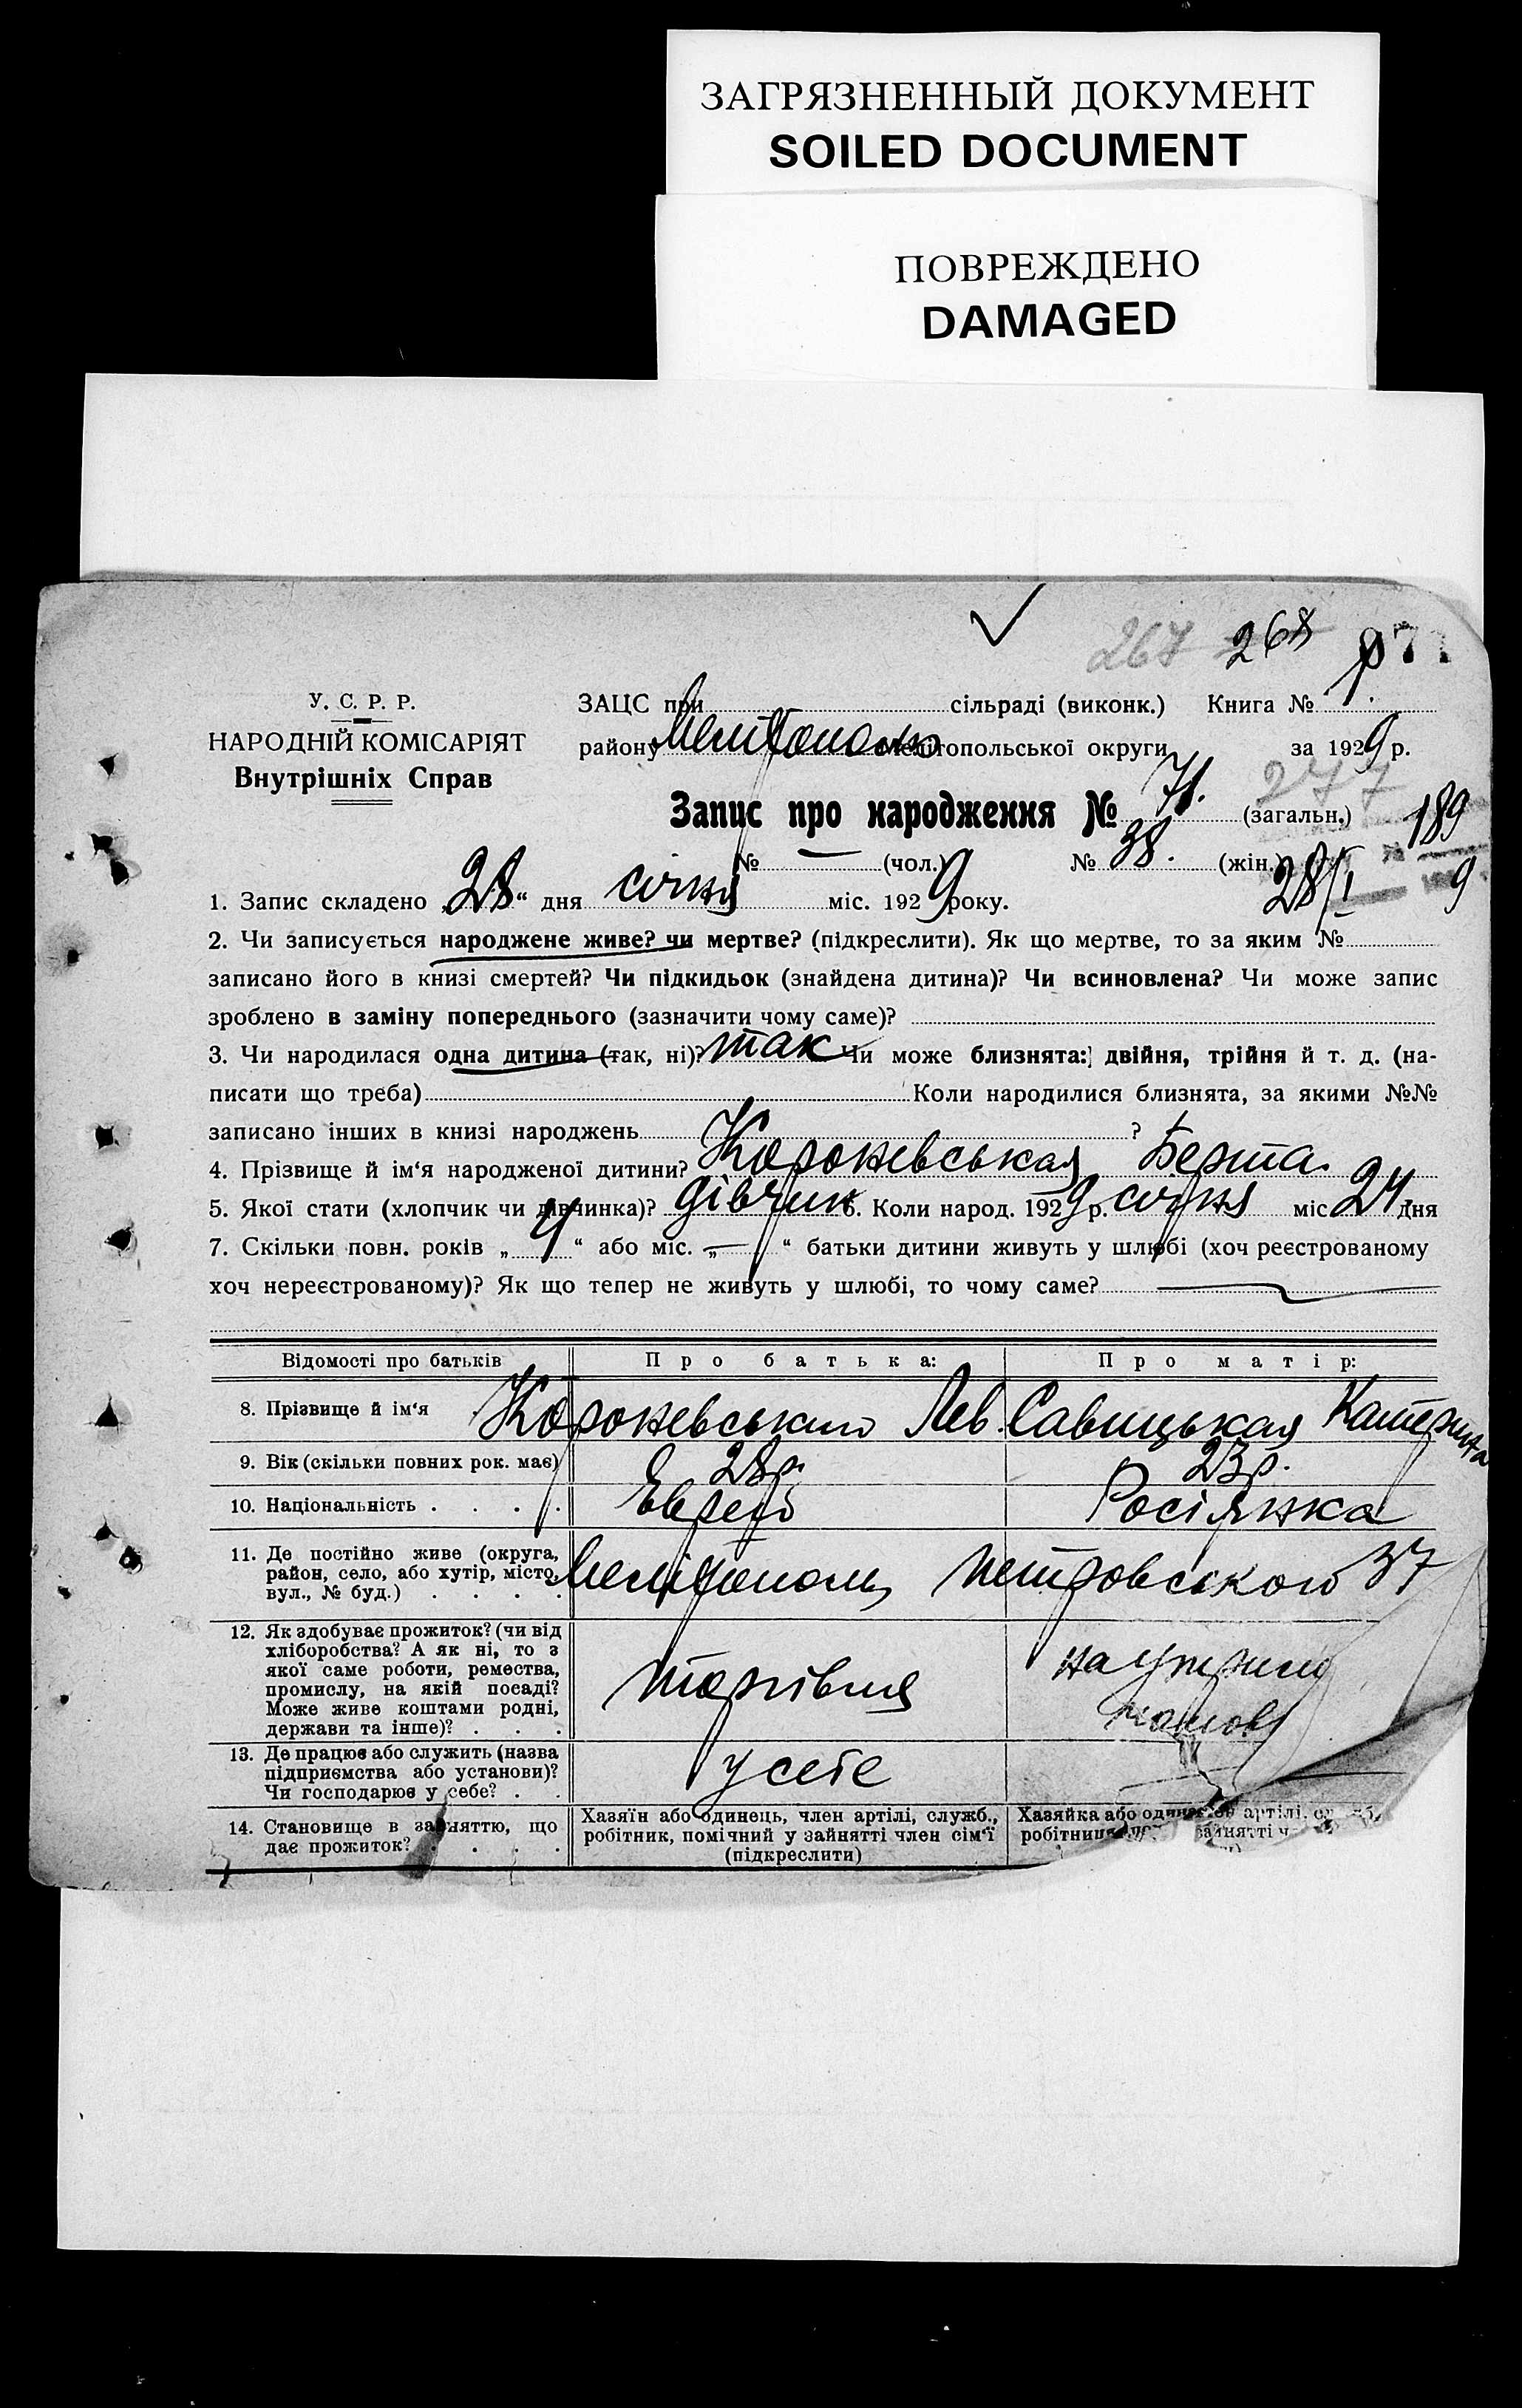 ЗАГРЯЗНЕННЫЙ ДОКУМЕНТ
SOILED DOCUMENT
ПОВРЕЖДЕНО
DAMAGED
267 268
У. С. Р. Р.
НАРОДНІЙ КОМІСАРІЯТ
Внутрішніх Справ
ЗАЦС при сільраді (виконк.) Книга № 1.
району Мелітополь Мелітопольської округи за 1929 р.
277
Запис про народження № 71. (загальн.) 189
№ — (чол.) № 38. (жін.) 28/I 9
1. Запис складено „28“ дня січня міс. 1929 року.
2. Чи записується народжене живе? чи мертве? (підкреслити). Як що мертве, то за яким №
записано його в книзі смертей? Чи підкидьок (знайдена дитина)? Чи всиновлена? Чи може запис
зроблено в заміну попереднього (зазначити чому саме)?
3. Чи народилася одна дитина (так, ні)? так Чи може близнята: двійня, трійня й т. д. (на-
писати що треба) Коли народилися близнята, за якими №№
записано інших в книзі народжень ?
4. Прізвище й ім‘я народженої дитини? Короневськая Берта
5. Якої стати (хлопчик чи дівчинка)? дівчин 6. Коли народ. 1929 р. січня міс 24 дня
7. Скільки повн. років „4“ або міс. „—“ батьки дитини живуть у шлюбі (хоч реєстрованому
хоч нереєстрованому)? Як що тепер не живуть у шлюбі, то чому саме? —
Відомості про батьків Про батька: Про матір:
8. Прізвище й ім‘я Короневський Лев. Савицькая Катерина
9. Вік (скільки повних рок. має) 28 р. 23 р.
10. Національність . . . . Еврей Росіянка
11. Де постійно живе (округа,
район, село, або хутір, місто,
вул., № буд.) . . . . Мелітополь Петровського 37
12. Як здобуває прожиток? (чи від
хліборобства? А як ні, то з
якої саме роботи, ремества,
промислу, на якій посаді?
Може живе коштами родні,
держави та інше)? . . . торгівля
13. Де працює або служить (назва
підприємства або установи)?
Чи господарює у себе? . . у себе
14. Становище в зайняттю, що
дає прожиток? . . . .
Хазяїн або одинець, член артілі, служб.,
робітник, помічний у зайнятті член сім‘ї
(підкреслити)
Хазяйка або артілі,
зайнятті